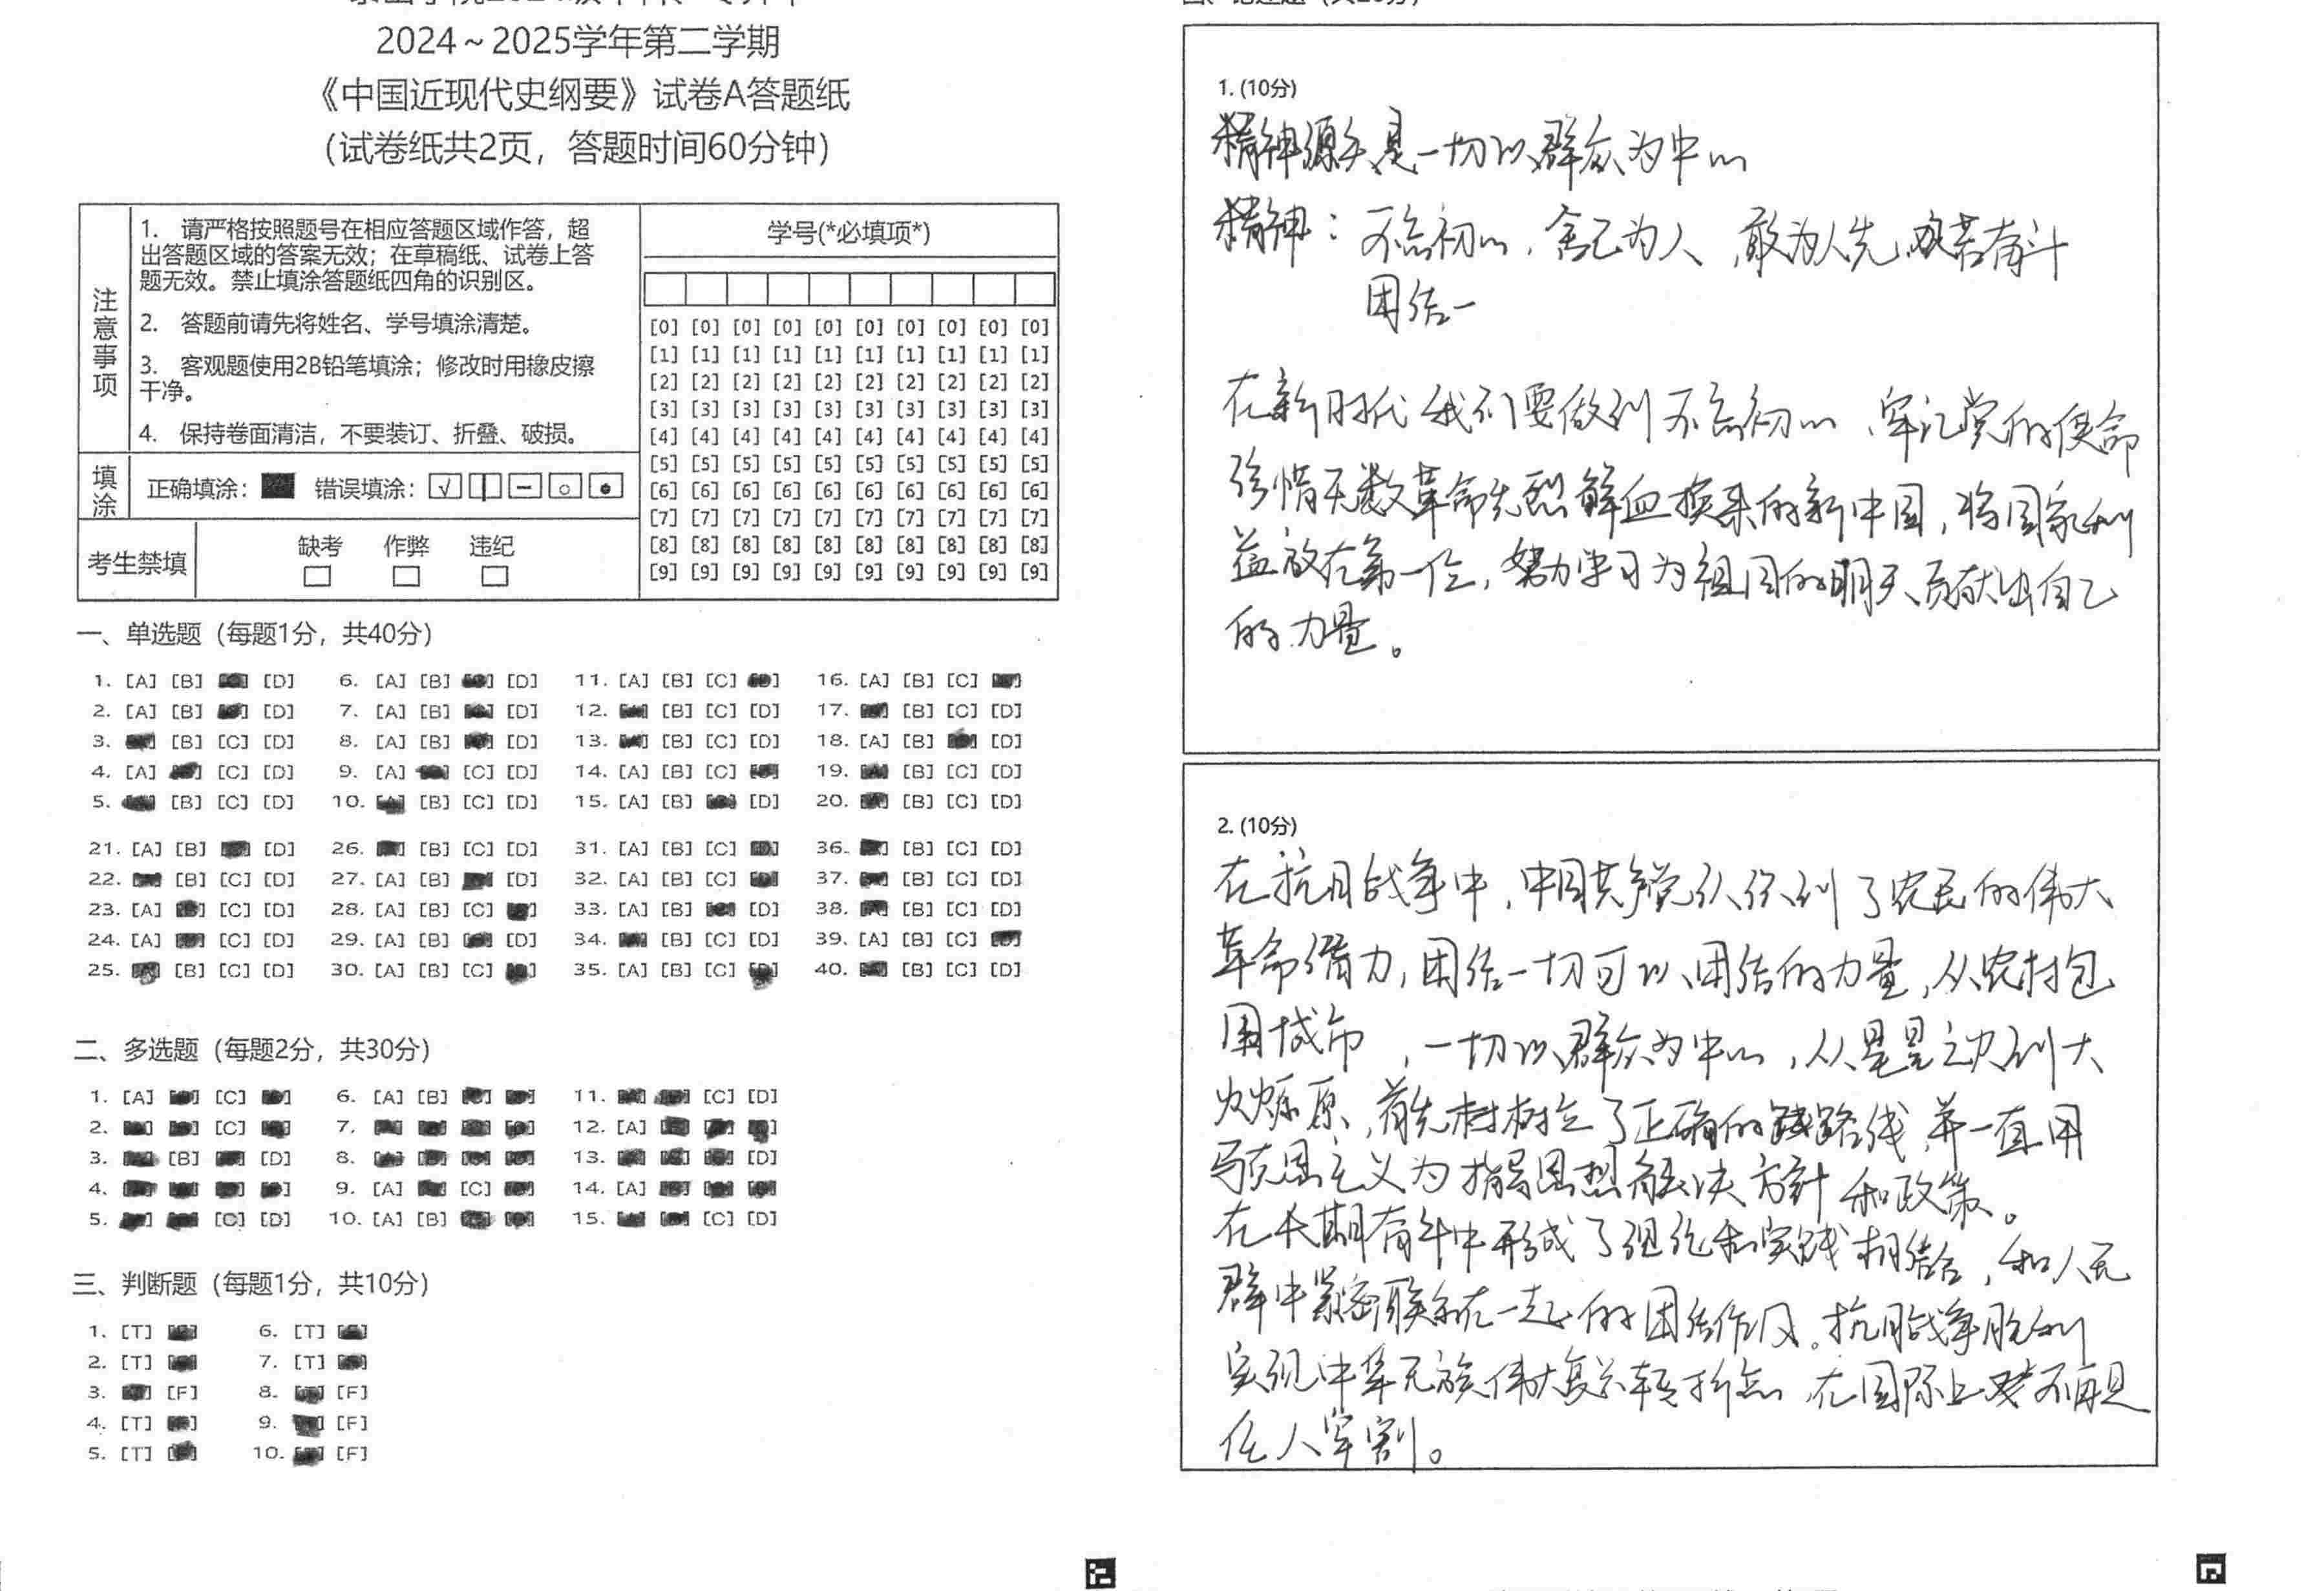 2024～2025学年第二学期
《中国近现代史纲要》试卷A答题纸
(试卷纸共2页，答题时间60分钟)
注意事项
1. 请严格按照题号在相应答题区域作答，超
出答题区域的答案无效；在草稿纸、试卷上答
题无效。禁止填涂答题纸四角的识别区。
2. 答题前请先将姓名、学号填涂清楚。
3. 客观题使用2B铅笔填涂；修改时用橡皮擦
干净。
4. 保持卷面清洁，不要装订、折叠、破损。
填涂
正确填涂： 错误填涂：
考生禁填
缺考 作弊 违纪
学号(*必填项*)
[0] [0] [0] [0] [0] [0] [0] [0] [0] [0]
[1] [1] [1] [1] [1] [1] [1] [1] [1] [1]
[2] [2] [2] [2] [2] [2] [2] [2] [2] [2]
[3] [3] [3] [3] [3] [3] [3] [3] [3] [3]
[4] [4] [4] [4] [4] [4] [4] [4] [4] [4]
[5] [5] [5] [5] [5] [5] [5] [5] [5] [5]
[6] [6] [6] [6] [6] [6] [6] [6] [6] [6]
[7] [7] [7] [7] [7] [7] [7] [7] [7] [7]
[8] [8] [8] [8] [8] [8] [8] [8] [8] [8]
[9] [9] [9] [9] [9] [9] [9] [9] [9] [9]
一、单选题（每题1分，共40分）
1. [A] [B] [D] 6. [A] [B] [D] 11. [A] [B] [C] 16. [A] [B] [C]
2. [A] [B] [D] 7. [A] [B] [D] 12. [B] [C] [D] 17. [B] [C] [D]
3. [B] [C] [D] 8. [A] [B] [D] 13. [B] [C] [D] 18. [A] [B] [D]
4. [A] [C] [D] 9. [A] [C] [D] 14. [A] [B] [C] 19. [B] [C] [D]
5. [B] [C] [D] 10. [B] [C] [D] 15. [A] [B] [D] 20. [B] [C] [D]
21. [A] [B] [D] 26. [B] [C] [D] 31. [A] [B] [C] 36. [B] [C] [D]
22. [B] [C] [D] 27. [A] [B] [D] 32. [A] [B] [C] 37. [B] [C] [D]
23. [A] [C] [D] 28. [A] [B] [C] 33. [A] [B] [D] 38. [B] [C] [D]
24. [A] [C] [D] 29. [A] [B] [D] 34. [B] [C] [D] 39. [A] [B] [C]
25. [B] [C] [D] 30. [A] [B] [C] 35. [A] [B] [C] 40. [B] [C] [D]
二、多选题（每题2分，共30分）
1. [A] [C] 6. [A] [B] 11. [C] [D]
2. [C] 7. 12. [A]
3. [B] [D] 8. 13. [D]
4. 9. [A] [C] 14. [A]
5. [C] [D] 10. [A] [B] 15. [C] [D]
三、判断题（每题1分，共10分）
1. [T] 6. [T]
2. [T] 7. [T]
3. [F] 8. [F]
4. [T] 9. [F]
5. [T] 10. [F]
1. (10分)
精神源头是一切以群众为中心
精神：不忘初心，舍己为人，敢为人先，艰苦奋斗
团结一
在新时代我们要做到不忘初心、牢记党的使命
珍惜无数革命先烈鲜血换来的新中国，将国家利
益放在第一位，努力学习为祖国的明天贡献出自己
的力量。
2. (10分)
在抗日战争中，中国共产党认识到了农民的伟大
革命潜力，团结一切可以团结的力量，从农村包
围城市，一切以群众为中心，从星星之火到大
火燎原，首先树立了正确的路线，并一直用
马克思主义为指导思想解决方针和政策。
在长期奋斗中形成了理论和实践相结合，和人民
群中紧密联系在一起的团结作风。抗日战争胜利
实现中华民族伟大复兴转折点，在国际上不再是
任人宰割。